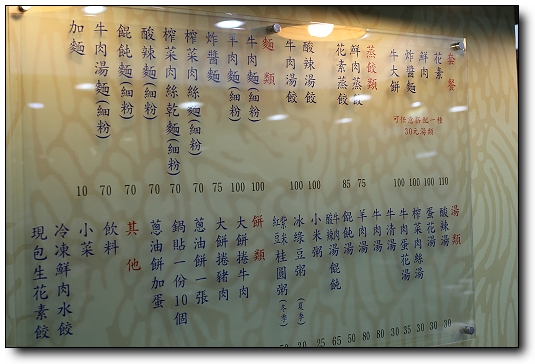 套餐
花素 110
鮮肉 100
炸醬麵 100
牛大餅 100
可任意搭配一種
30元湯類
蒸餃類
鮮肉蒸餃 75
花素蒸餃 85
酸辣湯餃 100
牛肉湯餃 100
麵類
牛肉麵(細粉) 100
羊肉麵(細粉) 100
炸醬麵 75
榨菜肉絲麵(細粉) 70
榨菜肉絲乾麵(細粉) 70
酸辣麵(細粉) 70
餛飩麵(細粉) 70
牛肉湯麵(細粉) 70
加麵 10
湯類
酸辣湯 30
蛋花湯 30
榨菜肉絲湯 30
牛肉蛋花湯 35
牛清湯 30
牛肉湯 80
羊肉湯 80
餛飩湯 50
酸辣湯餛飩
牛肉湯餛飩 65
小米粥 25
冰綠豆粥(夏季) 30
紫米
紅豆桂圓粥(冬季)
餅類
大餅捲牛肉
大餅捲豬肉
蔥油餅一張
鍋貼一份10個
蔥油餅加蛋
其他
飲料
小菜
冷凍鮮肉水餃
現包生花素餃